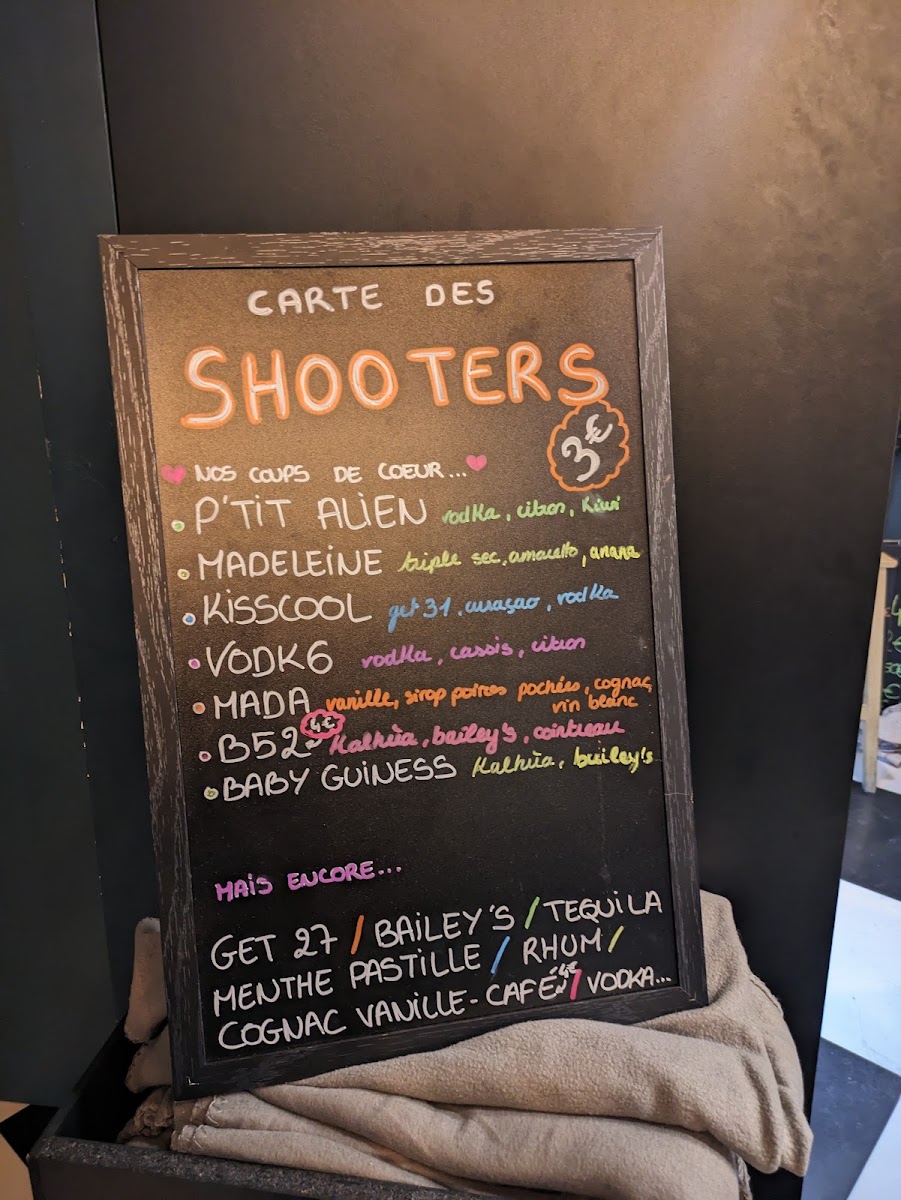 CARTE DES
SHOOTERS
3€
NOS COUPS DE COEUR...
P'TIT ALIEN vodka, citron, kiwi
MADELEINE triple sec, amaretto, anana
KISSCOOL get 31, curaçao, vodka
VODK6 vodka, cassis, citron
MADA vanille, sirop poires pochées, cognac,
vin blanc
B52 4€ Kalhùa, bailey's, cointreau
BABY GUINESS Kalhùa, bailey's
MAIS ENCORE...
GET 27 / BAILEY'S / TEQUILA
MENTHE PASTILLE / RHUM /
COGNAC VANILLE-CAFÉ 4€ / VODKA...